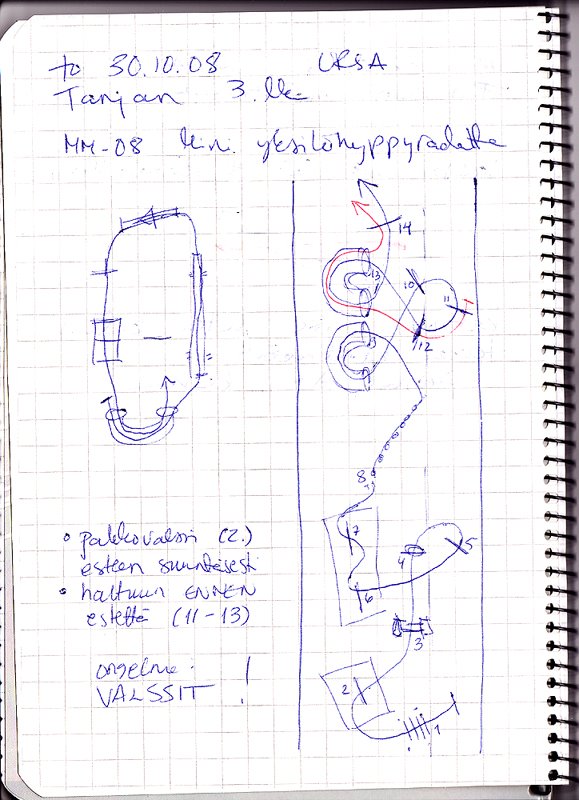 to 30.10.08 URSA
Tanjan 3. lk
MM-08 Mini. yksilöhyppyradatta
14
13
10
11
12
8
7
5
4
6
3
2
1
• pakkovalssi (2.)
esteen suuntaisesti
• haltuun ENNEN
estettä (11-13)
ongelma:
VALSSIT !